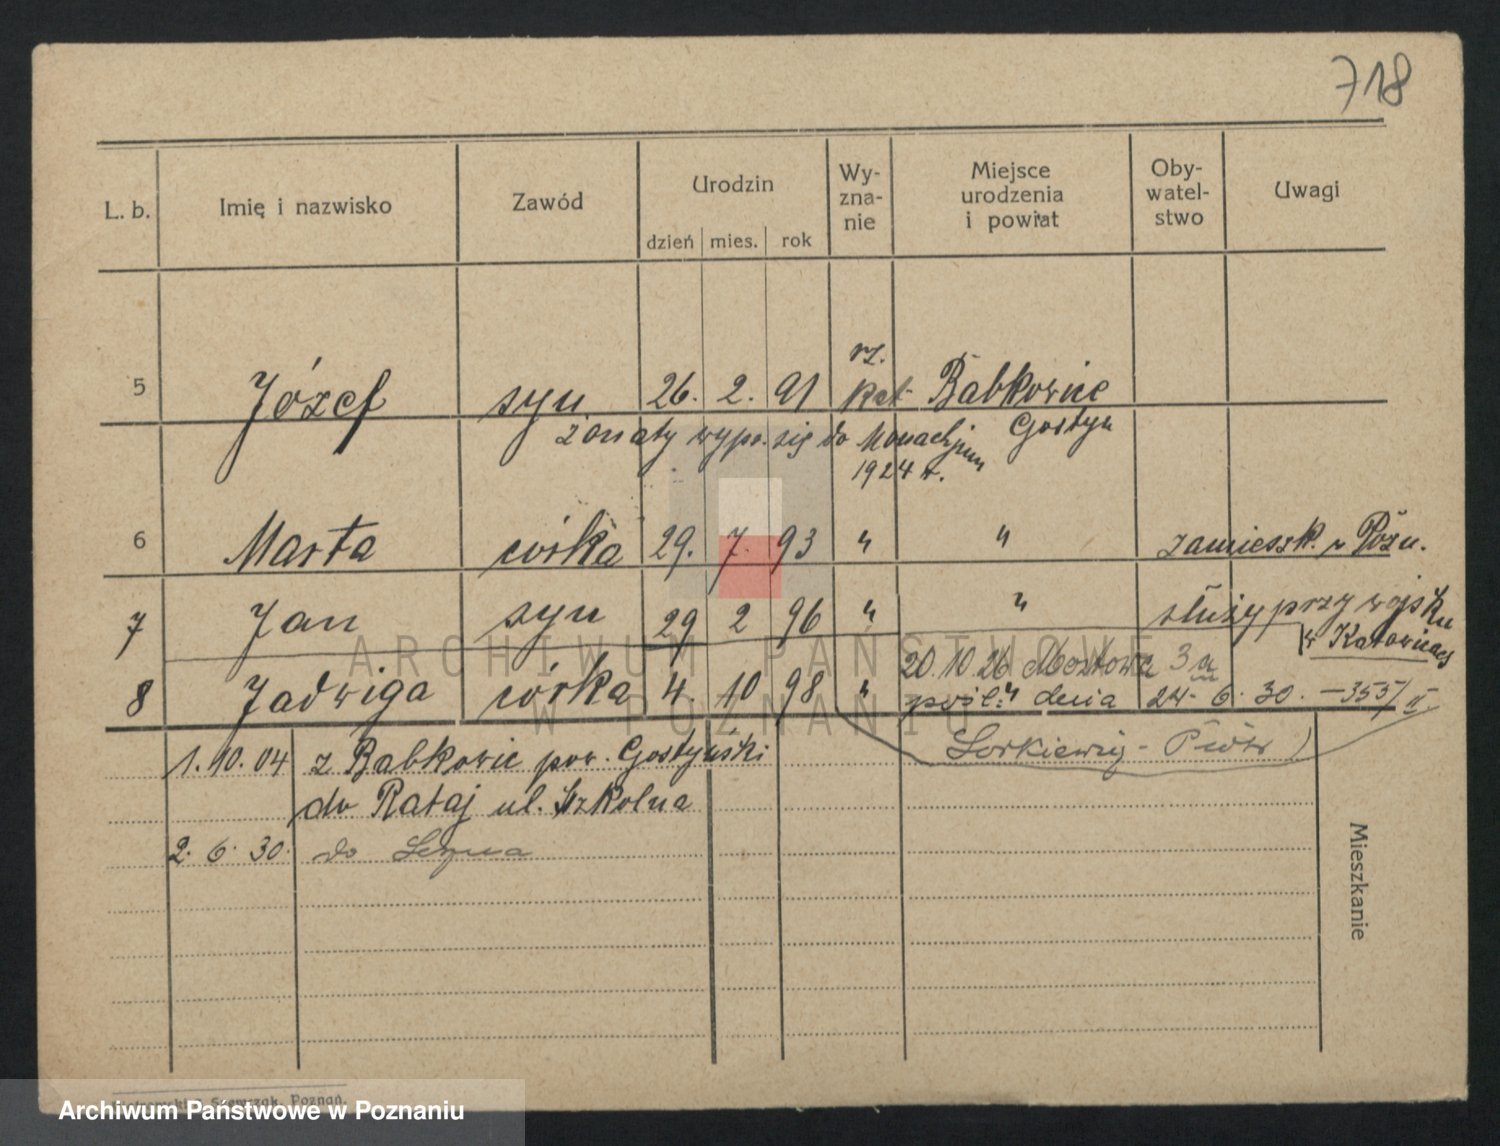 718
L. b. Imię i nazwisko Zawód Urodzin dzień mies. rok Wy-zna-nie Miejsce urodzenia i powiat Oby-watel-stwo Uwagi
5 Józef syn 26. 2. 91 rz. kat Babkowice Gostyn
żonaty wypr. się do Monachjum
1924 r.
6 Marta córka 29. 7. 93 " " zamieszk. w Pozn.
7 Jan syn 29 2 96 " " służy przy wojsku
w Katowicach
20.10.26 Mostowa 3a
8 Jadwiga córka 4. 10 98 " "
pośl. dnia 24. 6. 30. - 353/II
1.10.04 z Babkowic pow. Gostyński
Piotr
do Rataj ul. Szkolna
2. 6. 30. do
Mieszkanie
ARCHIWUM PAŃSTWOWE
W POZNANIU
Poznań.
Archiwum Państwowe w Poznaniu